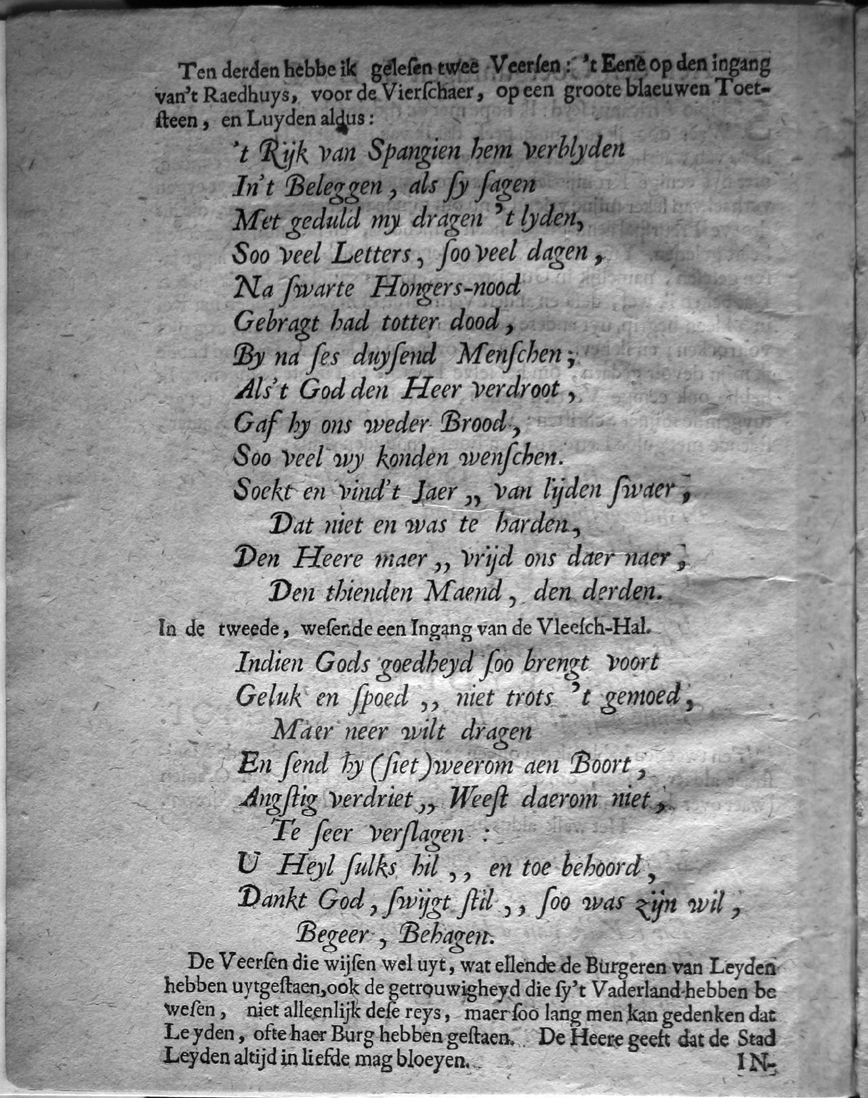 Ten derden hebbe ik geleſen twee Veerſen: 't Eene op den ingang
van't Raedhuys, voor de Vierſchaer, op een groote blaeuwen Toet-
ſteen, en Luyden aldus:
't Rijk van Spangien hem verblyden
In't Beleggen, als ſy ſagen
Met geduld my dragen 't lyden,
Soo veel Letters, ſoo veel dagen,
Na ſwarte Hongers-nood
Gebragt had totter dood,
By na ſes duyſend Menſchen;
Als't God den Heer verdroot,
Gaf hy ons weder Brood,
Soo veel wy konden wenſchen.
Soekt en vind't Jaer ,, van lijden ſwaer,
Dat niet en was te harden,
Den Heere maer ,, vrijd ons daer naer,
Den thienden Maend, den derden.
In de tweede, weſende een Ingang van de Vleeſch-Hal.
Indien Gods goedheyd ſoo brengt voort
Geluk en ſpoed ,, niet trots 't gemoed,
Maer neer wilt dragen
En ſend hy (ſiet) weerom aen Boort,
Angſtig verdriet ,, Weeſt daerom niet,
Te ſeer verſlagen :
U Heyl ſulks hil ,, en toe behoord,
Dankt God, ſwijgt ſtil ,, ſoo was zijn wil,
Begeer, Behagen.
De Veerſen die wijſen wel uyt, wat ellende de Burgeren van Leyden
hebben uytgeſtaen, ook de getrouwigheyd die ſy't Vaderland hebben be
weſen, niet alleenlijk deſe reys, maer ſoo lang men kan gedenken dat
Leyden, ofte haer Burg hebben geſtaen. De Heere geeft dat de Stad
Leyden altijd in liefde mag bloeyen.
IN-